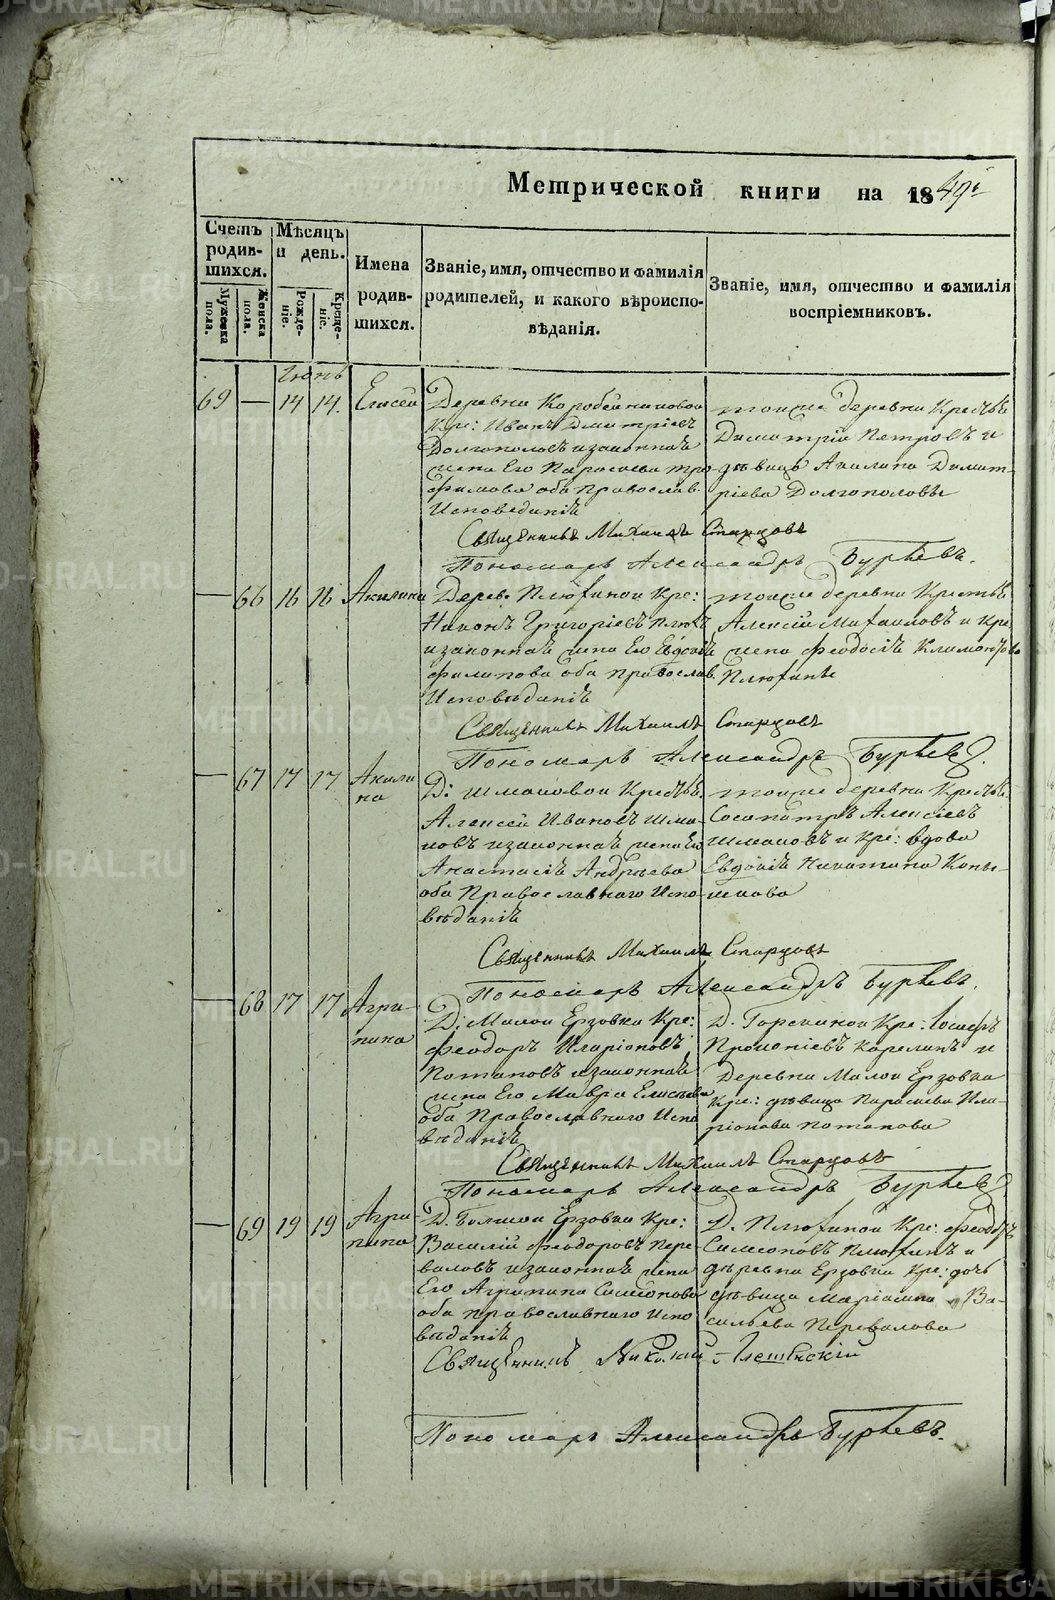 Метрической книги на 1849г
Счетъ родив-шихся.
Мужеска пола.
Женска пола.
Мѣсяцъ и день.
Рожде-ніе.
Креще-ніе.
Имена родив-шихся.
Званіе, имя, отчество и фамилія
родителей, и какого вѣроиспо-
вѣданія.
Званіе, имя, отчество и фамилія
воспріемниковъ.
Іюнь
69 — 14 14. Елисей
Деревни Коробейниковой
Кре: Иванъ Дмитріевъ
Долгополовъ изаконная
жена Его Параскева Тро
фимова оба Православ.
Исповеданія
тойже деревни Кресть
Димитрій Петровъ и
дѣвица Акилина Димит-
ріева Долгополовы
Священникъ Михаилъ Старцовъ
Пономарь Александръ Бурѣевъ.
— 66 16 16 Акилина
Дерев. Плюхиной Кре:
Никонъ Григоріевъ Плюх
изаконная жена Его Евдокія
Филипова оба православ.
Исповѣданія
тойже деревни Кресть
Алексій Михаиловъ и Кре
жена Феодосія Климонтова
Плюхины
Священникъ Михаилъ Старцовъ
Пономарь Александръ Бурѣевъ.
— 67 17 17 Акили
на
Д: Шмаковой Крестья.
Алексей Ивановъ Шма-
ковъ изаконная жена Его
Анастасія Андрѣева
оба Православнаго Испо-
вѣданія
тойже деревни Крестья.
Сосипатръ Алексіевъ
Шмаковъ и Кре: вдова
Евдокія Никитина Конь-
шкова
Священникъ Михаилъ Старцовъ
Пономарь Александръ Бурѣевъ.
— 68 17 17 Агри-
пина
Д: Малой Ерзовки Кре:
Феодоръ Иларіоновъ
Потаповъ изаконная
жена Его Мавра Елисѣева
оба Православнаго Испо
вѣданія
Д. Горскиной Кре: Іосифъ
Прокопіевъ Карелинъ и
Деревни Малой Ерзовки
Кре: дѣвица Параскева Ила-
ріонова Потапова
Священникъ Михаилъ Старцовъ
Пономарь Александръ Бурѣевъ
— 69 19 19 Агри
пина
Д. Большой Ерзовки Кре:
Василій Феодоровъ Пере-
валовъ изаконная жена
Его Агрипина Симеонова
оба православнаго Испо
вѣданія
Д. Плюхиной Кре: Феодоръ
Симеоновъ Плюхинъ и
деревни Ерзовки Кре: дочь
дѣвица Маріамна Ва-
сильева Перевалова
Священникъ Николай
Пономарь Александръ Бурѣевъ.
METRIKI.GASO-URAL.RU